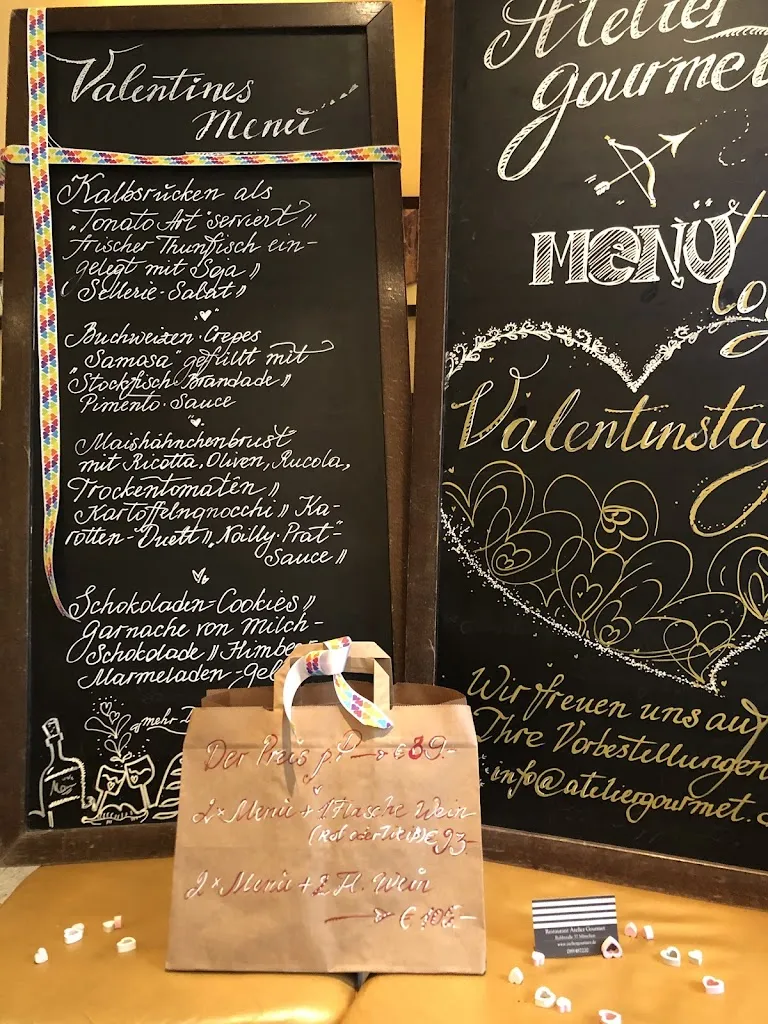 Valentines
Menü
Kalbsrücken als
"Tonato Art" serviert //
frischer Thunfisch ein-
gelegt mit Soja //
Sellerie-Salat //
Buchweizen-Crepes
"Samosa" gefüllt mit
Stockfisch-Brandade //
Pimento-Sauce
Maishähnchenbrust
mit Ricotta, Oliven, Rucola,
Trockentomaten //
Kartoffelngnocchi // Ka-
rotten-Duett // "Nailly-Prat"-
Sauce //
Schokoladen-Cookies //
Garnache von Milch-
Schokolade // Himbe
Marmeladen-Gel
mehr
Atelier
gourmet
MENÜ
Valentinsta
Wir freuen uns auf
Ihre Vorbestellungen
info@ateliergourmet.
Der Preis p.P → € 39.-
2x Menü + 1 Flasche Wein
(Rot oder Weiß) € 93.-
2x Menü + 2 Fl. Wein
→ € 106.-
Restaurant Atelier Gourmet